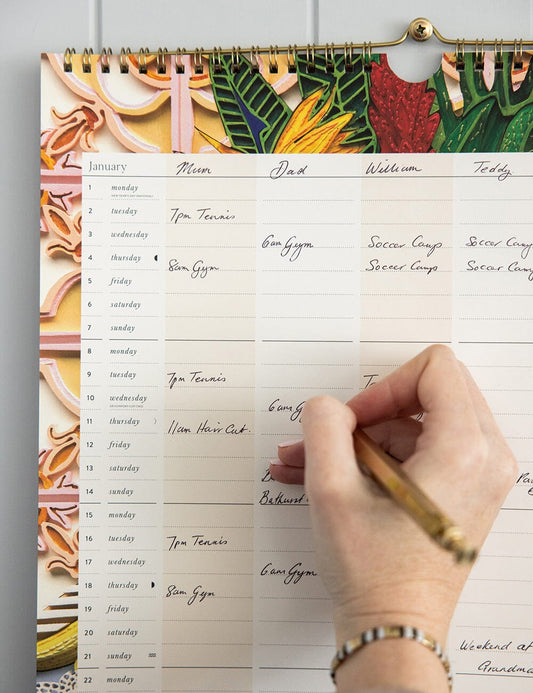 January Mum Dad William Teddy
1 monday
NEW YEAR'S DAY (NATIONAL)
2 tuesday 7pm Tennis
3 wednesday 6am Gym Soccer Camp Soccer Camp
4 thursday 8am Gym Soccer Camp Soccer Camp
5 friday
6 saturday
7 sunday
8 monday
9 tuesday 7pm Tennis
10 wednesday 6am Gy
11 thursday 11am Hair Cut.
12 friday
13 saturday
14 sunday Bathurst
15 monday
16 tuesday 7pm Tennis
17 wednesday 6am Gym
18 thursday 8am Gym
19 friday
20 saturday Weekend at
21 sunday Grandma
22 monday